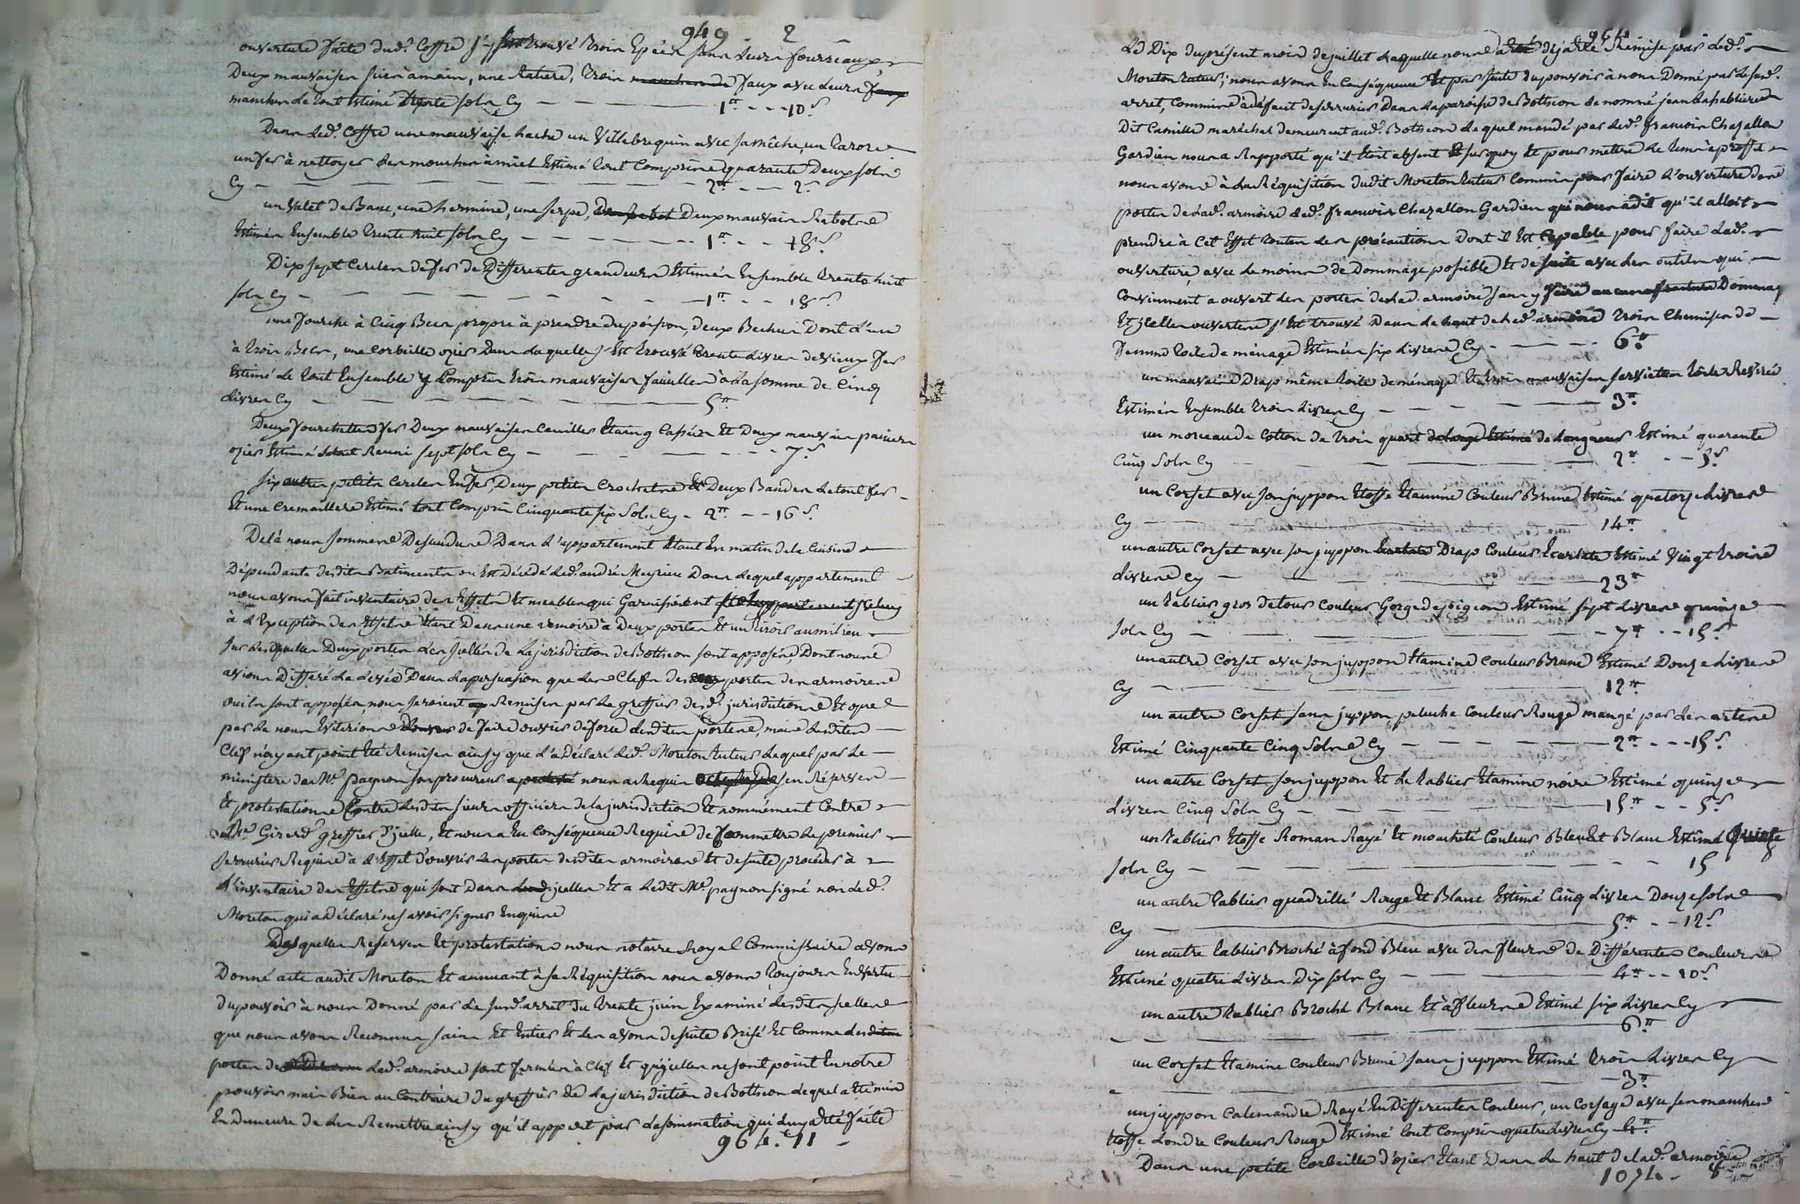 949 - 2 -
ouverture faite dud. Coffre s'y est trouvé trois Epées sans leurs fourreaux
Deux mauvaises scies à main, une Ratiere, trois faux avec leurs
manches le tout Estimé trente sols Cy - 1tt - - 10s
Dans led. Coffre une mauvaise hache un Villebrequin avec sa mêche, un tarore
un fer à nettoyer des mouches à miel Estimé tout Comprins quarante Deux sols
Cy - 2tt - - 2s
un Valet de Banc, une hermine, une serpe, Deux mauvais Rabots
Estimés Ensemble trente huit sols Cy - 1tt - - 18s
Dix sept Cercles de fer de Differentes grandeurs Estimés Ensemble trente huit
sols Cy - 1tt - - 18s
une fourche à Cinq Becs propre à prendre du poison, deux Bechus Dont l'un
à trois Becs, une Corbeille ozier Dans laquelle s'Est trouvé trente livres de vieux fer
Estimé le tout Ensemble y Compris trois mauvaises faucilles à la somme de Cinq
livres Cy - 5tt
Deux fourchettes fer Deux mauvaises Cuilles Etaing Cassées Et Deux mauvais paniers
ozier Estimé Reuni sept sols Cy - 7s
six petits Cercles En fer, Deux petits Crochets Et Deux Bandes le tout fer
Et une Cremaillere Estimé tout Compris Cinquante six Sols Cy - 2tt - - 16s
De là nous sommes Descendus Dans l'appartement Etant En matin de la Cuisine
Dépendante desdits Batiments ou Est décédé led. andré Meyrieu Dans lequel appartement
nous avons fait inventaire des Effets Et meubles qui Garnissoient
à l'Exception des Effets Etant Dans une armoire à Deux portes Et un tiroir au milieu
sur lesquelles Deux portes les scellés de la jurisdiction de Bothéon sont apposés, Dont nous
avions Differé la levée Dans la persuasion que les Clefs des portes des armoires
ou ils sont apposés nous seroient Remises par le greffier desd. jurisdictions Et que
par la nous Eviterions de faire ouvrir de force lesdites portes, mais lesdites
Clef n'ayant point Eté Remises ainsy que l'a Déclaré led. Moreton tuteur lequel par le
ministere de Me. paynon son procureur nous a Requis sen Réserver
Et protestations Contre lesdits sieurs officiers de la jurisdiction Et nommément Contre
Me. Girerd greffier d'icelle, Et nous a En Conséquence Requis de Commettre le premier
serrurier Requis à l'Effet d'ouvrir les portes desdites armoires Et de suite procéder à
l'inventaire des Effets qui sont Dans icelles Et a ledit Me. paynon signé non led.
Moreton qui a Déclaré ne sçavoir signer Enquis
Desquelles Reserves Et protestations nous notaire Royal Commissaire avons
Donné acte audit Moreton Et annuant à sa Réquisition nous avons toujours En vertu
du pouvoir à nous Donné par le susd. arret du trente juin Examiné lesdits scellés
que nous avons Reconnus sains Et Entiers Et les avons de suite Brisé Et Comme lesdites
portes de lad. armoire sont fermées à Clef Et qu'icelles ne sont point En notre
pouvoir mais Bien au Contraire du greffier de la jurisdiction de Bothéon lequel a Eté mis
En demeure de les Remettre ainsy qu'il appert par la sommation qui luy a été faite
964tt 11 -
964
Le Dix du présent mois de juillet laquelle nous a déja été Remise par led.
Moreton tuteur; nous avons En Conséquence Et par suite du pouvoir à nous Donné par le susd.
arret, Commis à déffaut de serrurier Dans la paroisse de Bothéon le nommé jean Bahablier
Dit Camille maréchal demeurant aud. Bothéon lequel mandé par led. francois Chazallon
Gardien nous a Rapporté qu'il Etoit absent Et pour mettre le tems à proffit
nous avons à la Réquisition dudit Moreton tuteur Commis pour faire l'ouverture des
portes de lad. armoire led. francois Chazallon Gardien qui nous a dit qu'il alloit
prendre à Cet Effet toutes les précautions Dont il Est Capable pour faire lad.
ouverture avec le moins de Dommage possible Et de suite avec des outils qui
Conviennent a ouvert les portes de lad. armoire sans y faire Dommage
Et icelles ouvertes s'Est trouvé Dans le haut de lad. armoire trois Chemises de
femme toile de ménage Estimées six livres Cy - 6tt
un mauvais Drap même toile de ménage Et trois mauvaises serviettes toile Resirée
Estimés Ensemble trois livres Cy - 3tt
un morceau de Cotton de trois quart de longueur Estimé quarante
Cinq Sols Cy - 2tt - - 5s
un Corset avec son juppon Etoffe Etamine Couleur Brune Estimé quatorze livres
Cy - 14tt
un autre Corset avec son juppon Drap Couleur Ecarlate Estimé Vingt trois
livres Cy - 23tt
un tablier gros de tour Couleur Gorge de pigeon Estimé sept livres quinze
sols Cy - 7tt - - 15s
un autre Corset avec son juppon Etamine Couleur Brune Estimé Douze livres
Cy - 12tt
un autre Corset sans juppon, peluche Couleur Rouge mangé par les artes
Estimé Cinquante Cinq Sols Cy - 2tt - - 15s
un autre Corset son juppon Et le tablier Etamine noire Estimé quinze
livres Cinq Sols Cy - 15tt - - 5s
un tablier Etoffe Roman Rayé Et moucheté Couleur Bleu Et Blanc Estimé quinze
sols Cy - 15
un autre tablier quadrillé Rouge Et Blanc Estimé Cinq livres Douze sols
Cy - 5tt - - 12s
un autre tablier Broché à fond Bleu avec des fleurs de Différentes Couleurs
Estimé quatre livres Dix sols Cy - 4tt - - 10s
un autre tablier Broché Blanc Et à fleurs Estimé six livres Cy
- 6tt
un Corset Etamine Couleur Brune sans juppon Estimé trois livres Cy
- 3tt
un juppon Calemandre Rayé En Differentes Couleurs, un Corsage avec ses manches
Etoffe Londre Couleur Rouge Estimé tout Compris quatre livres Cy 4tt
Dans une petite Corbeille d'ozier Etant Dans le haut de lad. armoire
1074 -